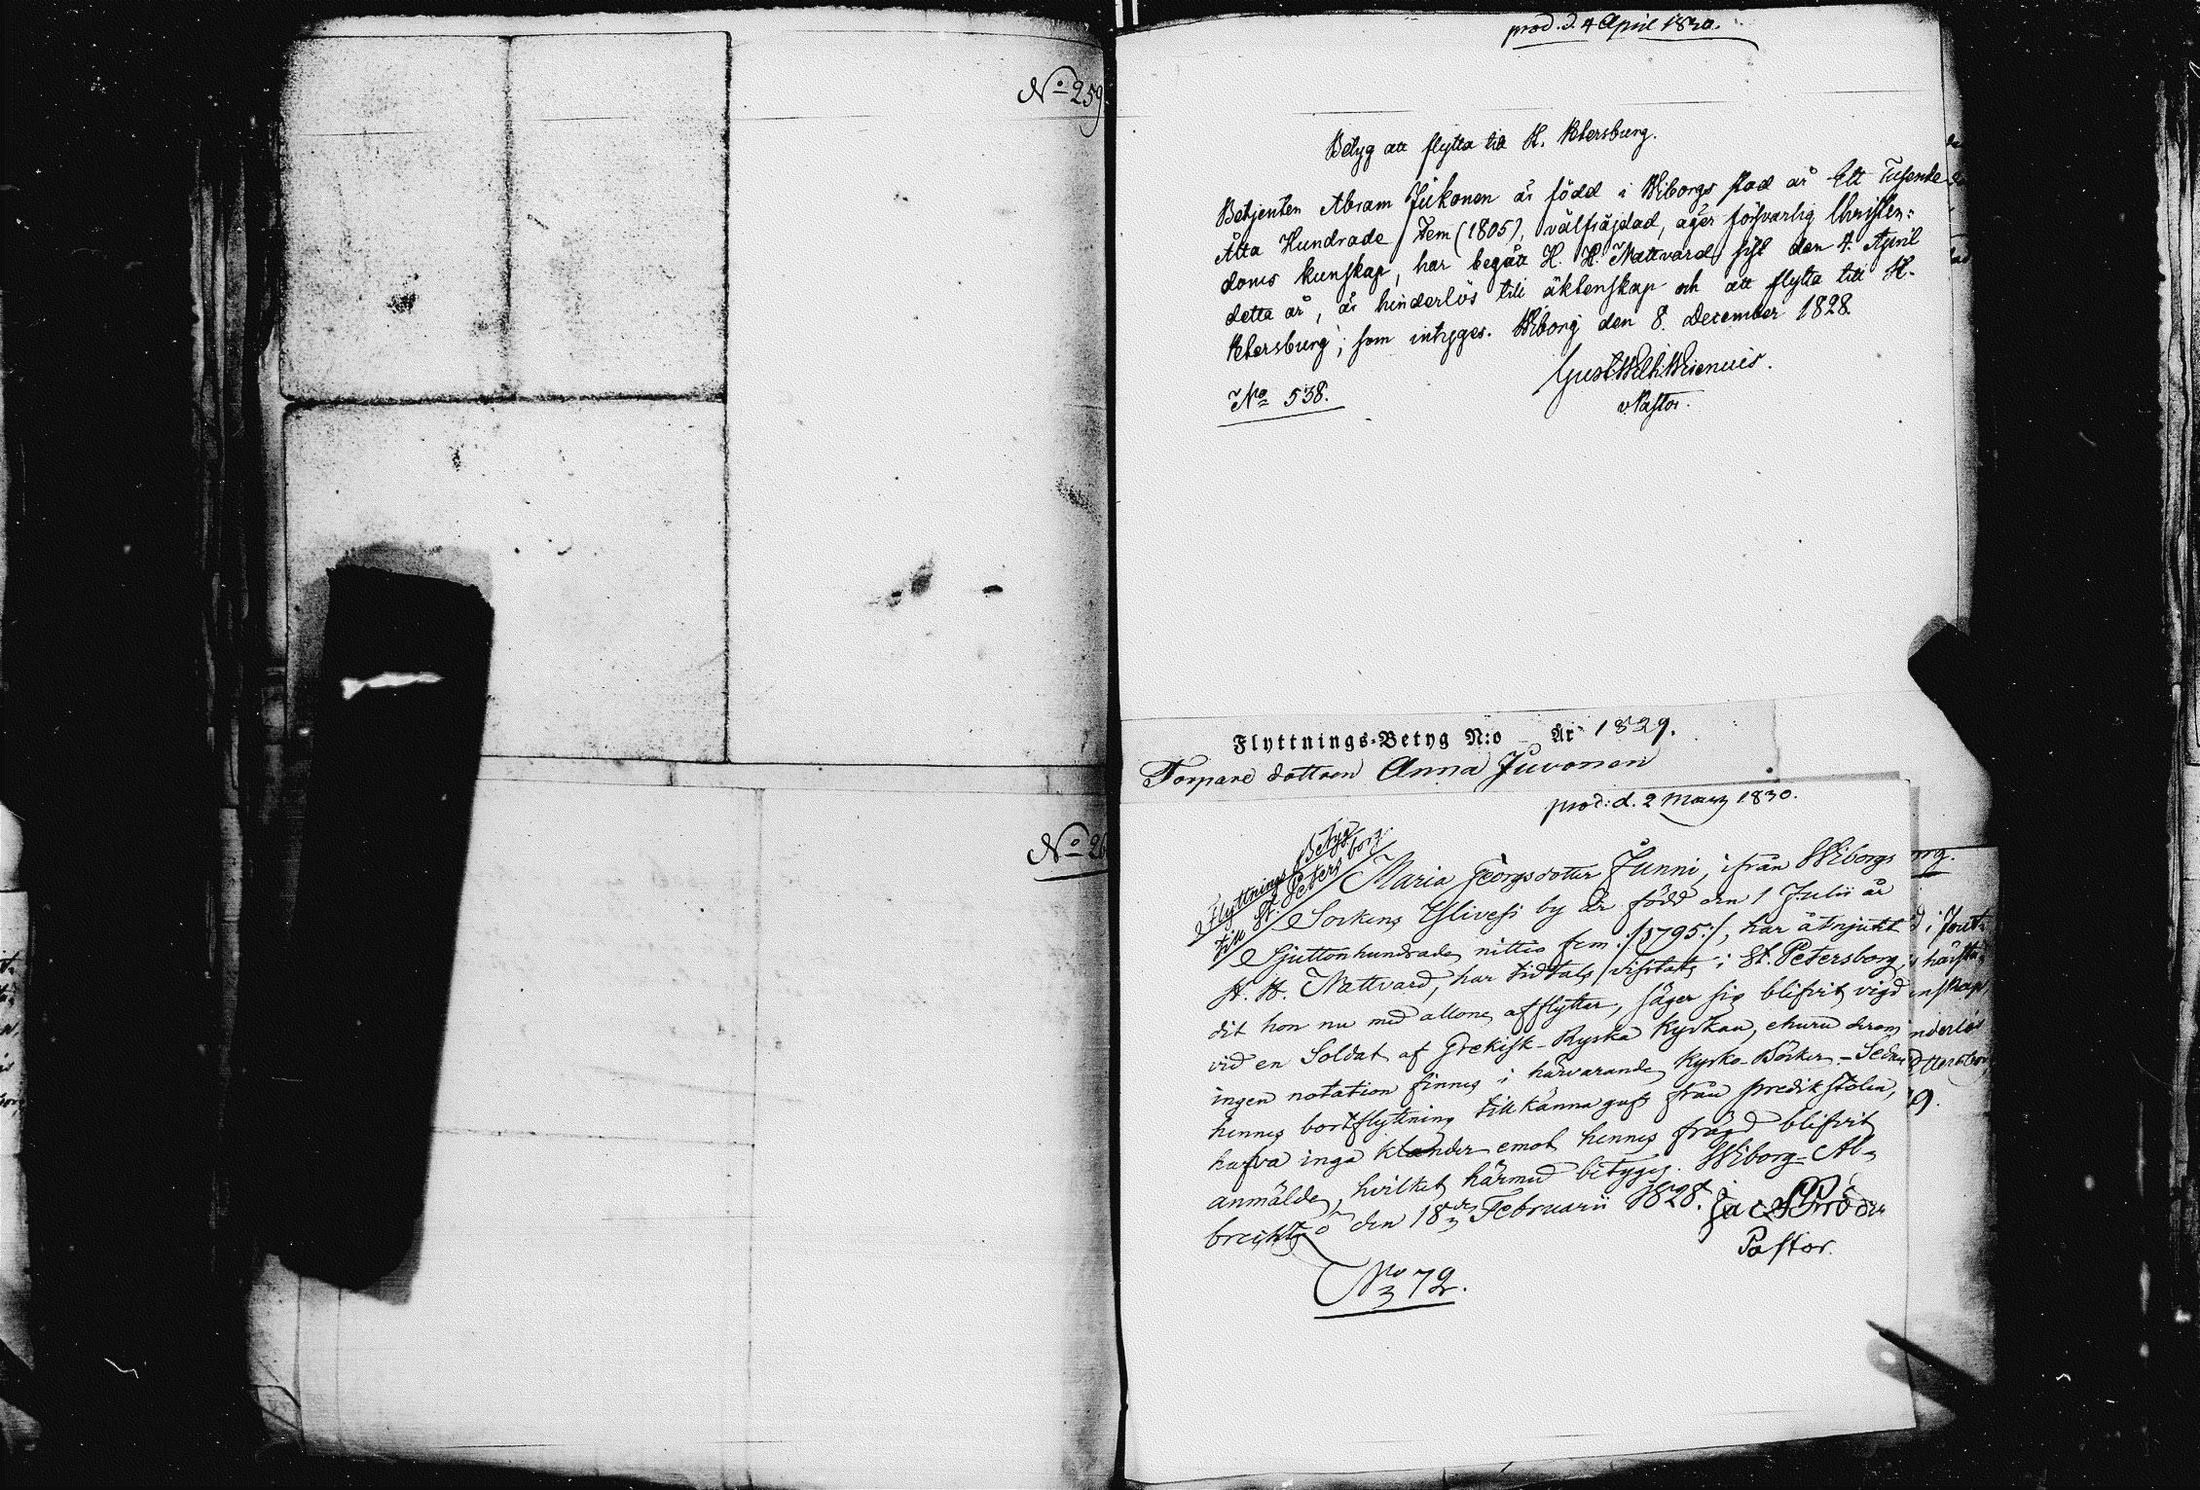 No 259
prod. d. 4 April 1830.
Betyg att flytta till St. Petersburg.
Betjenten Abram Jukonen är född i Wiborgs stad år Ett Tusende
Åtta Hundrade Fem (1805), välfräjdad, äger försvarlig Christen=
doms kunskap, har begått H. H. Nattvard sist den 4. April
detta år, är hinderlös till äktenskap och att flytta till St.
Petersburg; som intygas. Wiborg den 8. December 1828.
Gust Wilh: Wienuis.
v. Pastor.
No 538.
Flyttnings-Betyg N:o År 1829.
Torpare dottren Anna Juvonen
prod: d. 2 Mars 1830.
No 26
Flyttnings Betyg
till St. Petersborg.
Maria Georgsdotter Junni, ifrån Wiborgs
Sockens Ylivesi by är född den 1 Julii år
Sjuttonhundrade nittio fem :/1795:/, har åtnjutit
H. H. Nattvard, har tidtals vistats i St. Petersborg,
dit hon nu med allone afflyttar, säger sig blifvit vigd
vid en Soldat af Grekisk-Ryska Kyrkan, ehuru derom
ingen notation finnes i härvarande Kyrko-Böcker - Sedan
hennes bortflyttning tillkännagifs från predikstolen,
hafva inga klander emot hennes frägd blifvit
anmälde, hvilket härmed betygas. Wiborg - Al=
den 18 Februarii 1828.
Pastor.
No 72.